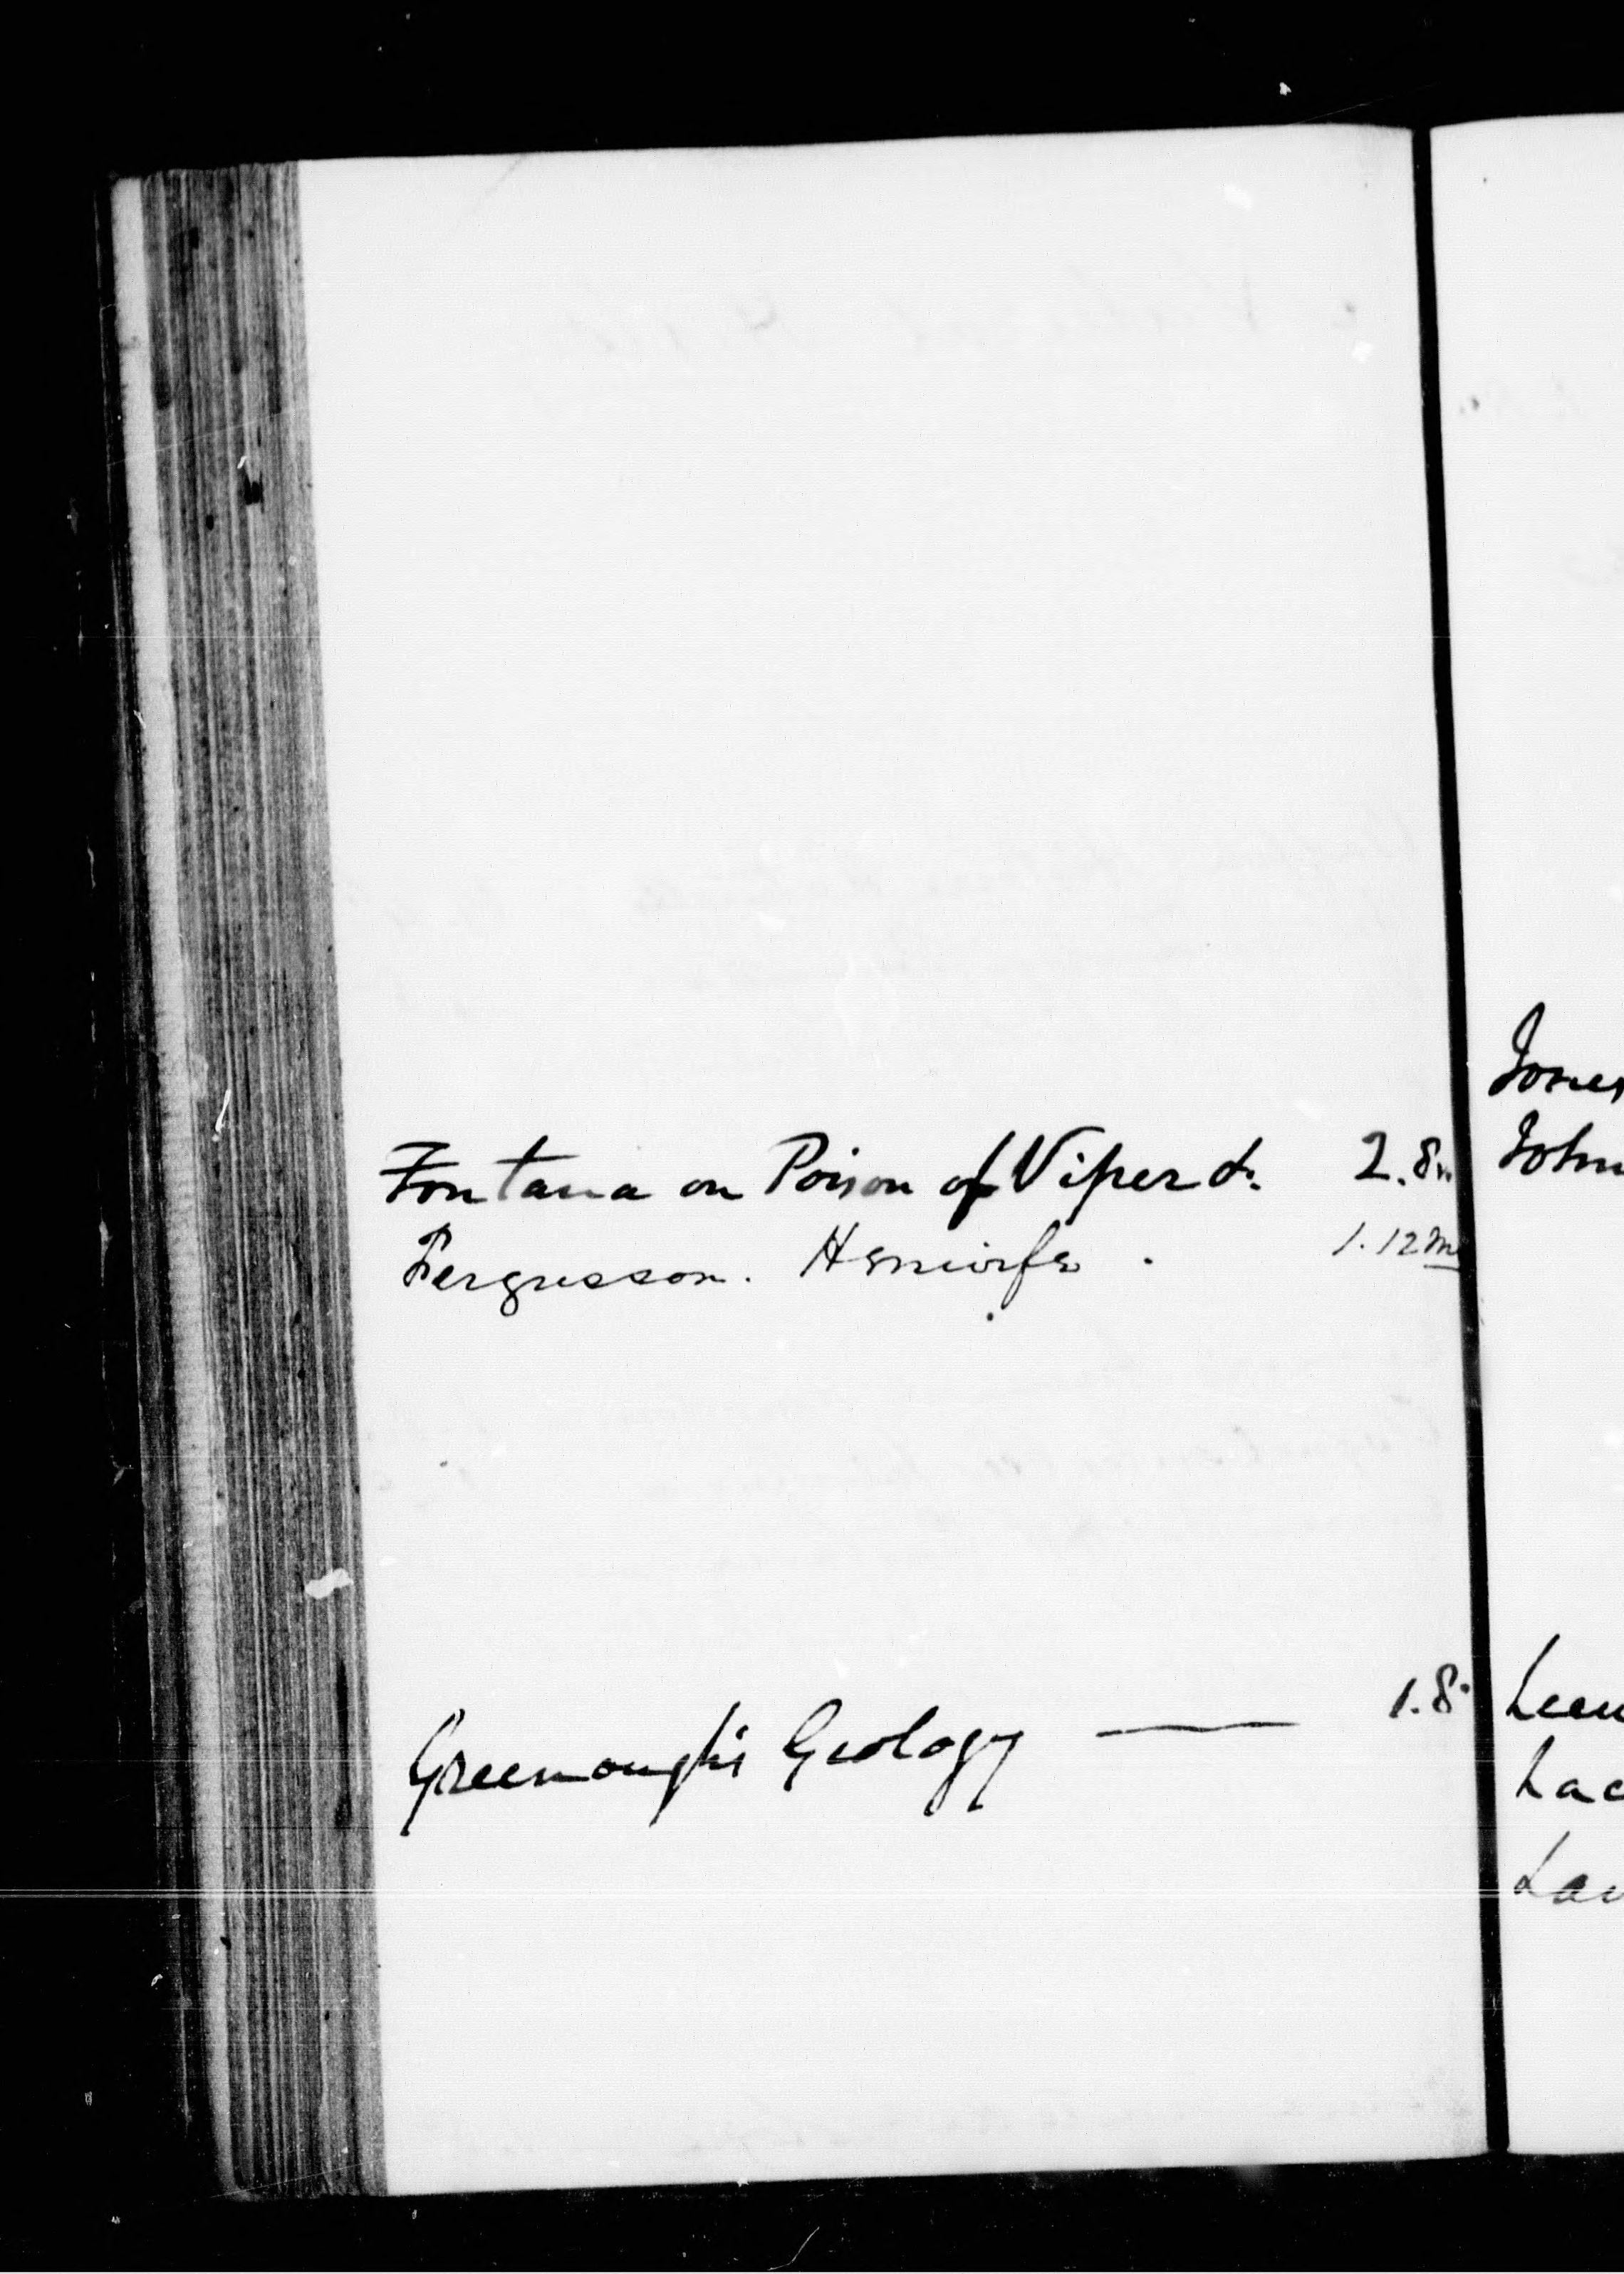 Fontana on Poison of Viper &. 2.8vo
Fergusson. 1.12mo
Greenough's Geology — 1.8
Jones
John
Leeu
Lac
Lav